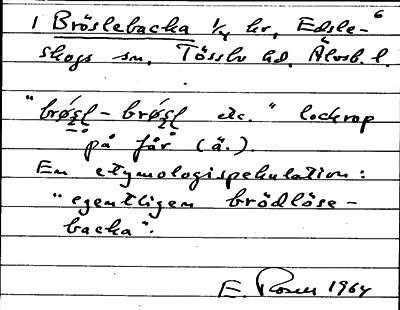 1 Bröslebacka 1/4 hr, Edsle- 6
skogs sn, Tössbo hd. Älvsb. l.
"brøsl - brøsl etc." lockrop
på får (ä.).
En etymologispekulation:
"egentligen brödlöse-
backa".
E. 1964